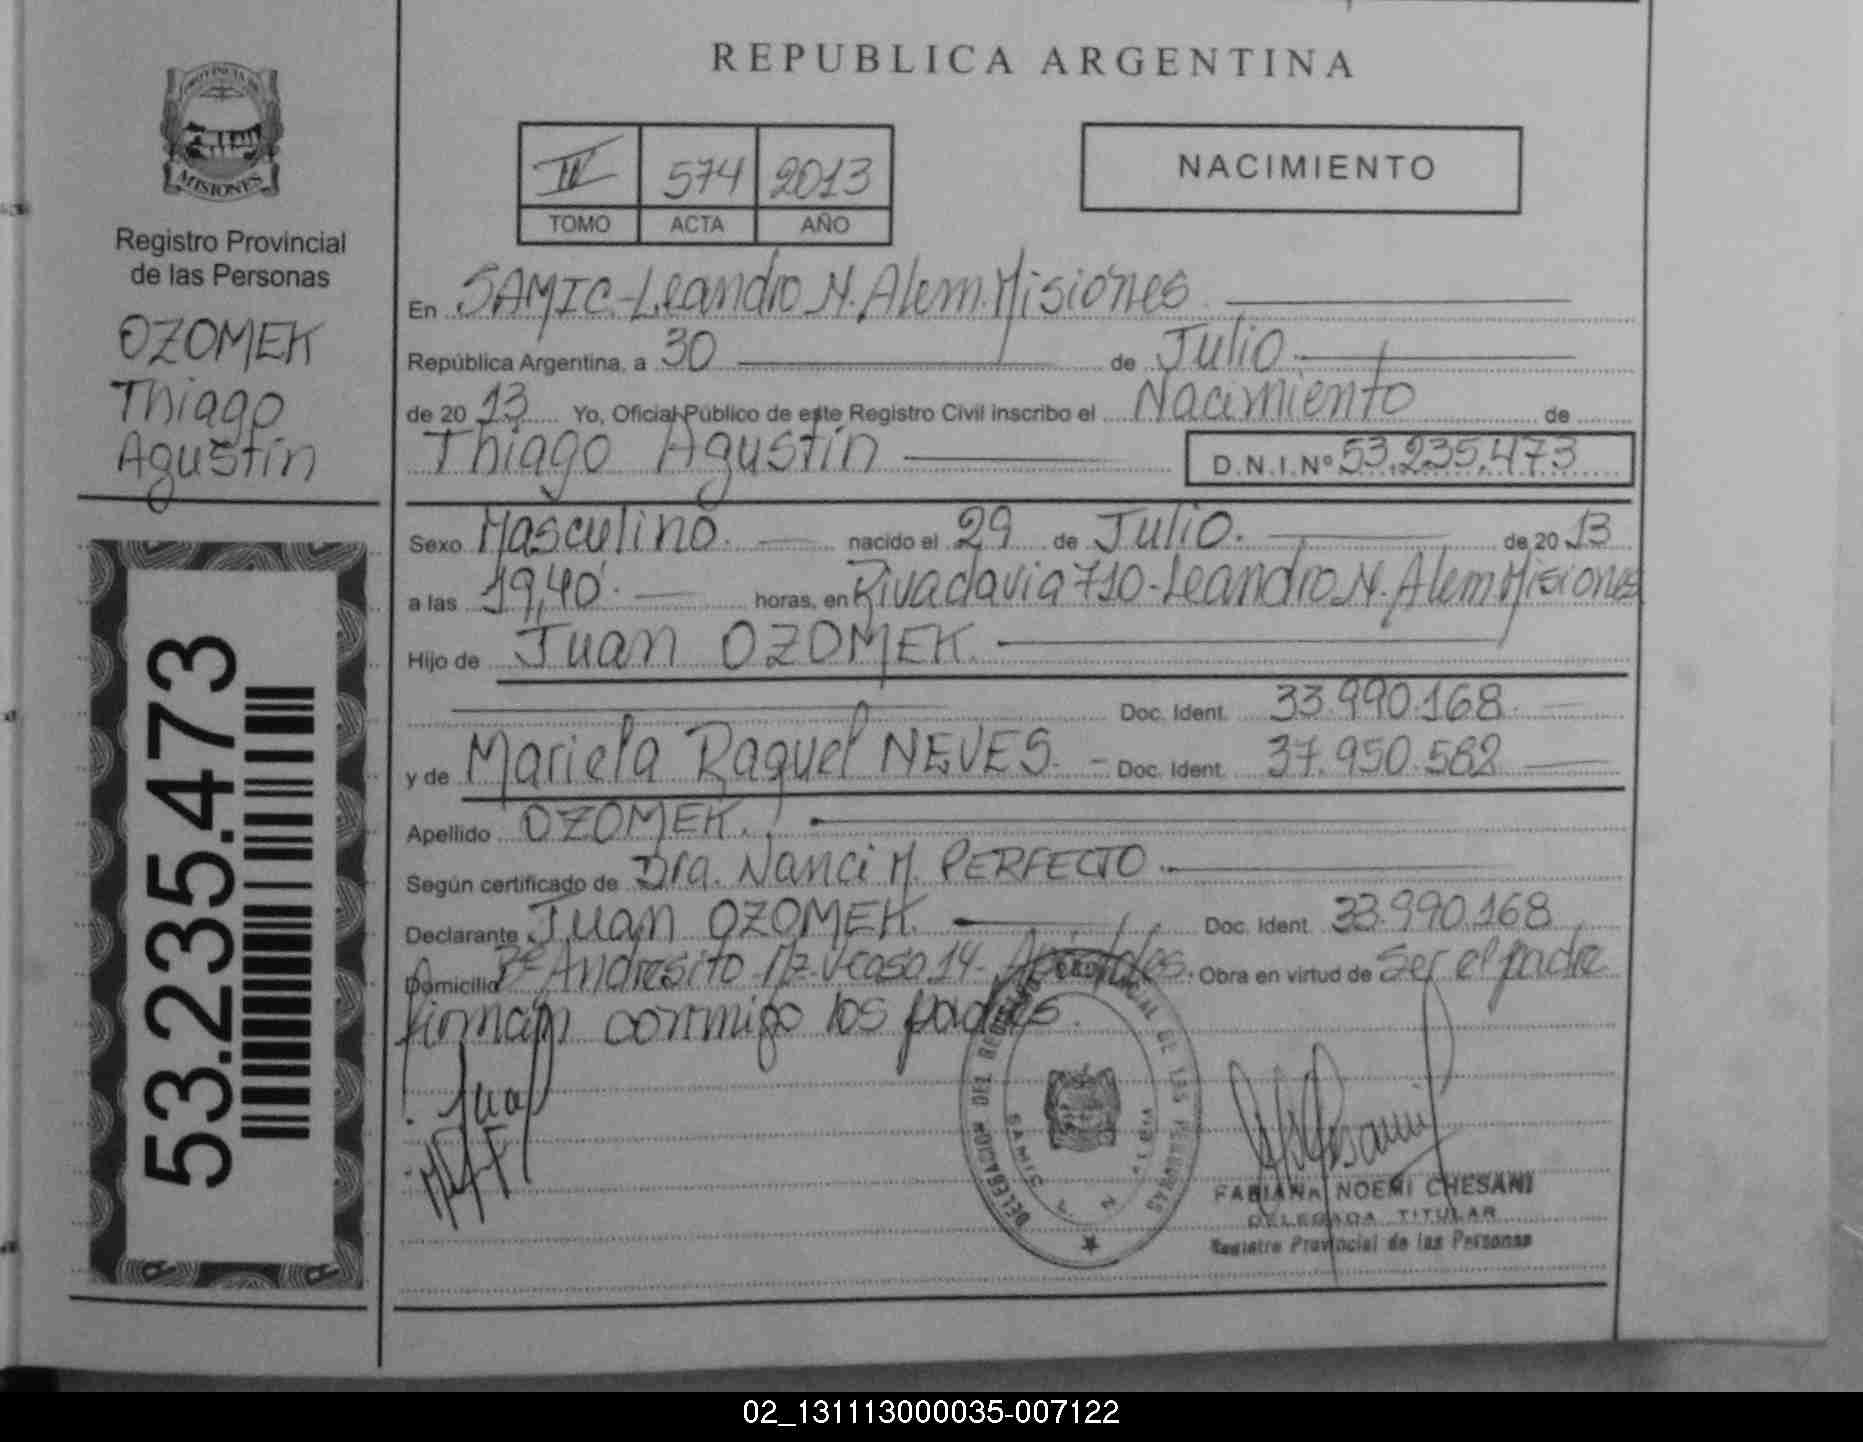 REPUBLICA ARGENTINA
PROVINCIA DE
MISIONES
Registro Provincial
de las Personas
OZOMEK
Thiago
Agustín
53.235.473
IV 574 2013
TOMO ACTA AÑO
NACIMIENTO
En SAMIC-Leandro N. Alem. Misiones
República Argentina, a 30 de Julio.
de 2013 Yo, Oficial Público de este Registro Civil inscribo el Nacimiento de
Thiago Agustín D.N.I.Nº 53.235.473
Sexo Masculino. nacido el 29 de Julio. de 2013
a las 19,40'. horas, en Rivadavia 710-Leandro N. Alem Misiones
Hijo de Juan OZOMEK.
Doc. Ident. 33.990.168
y de Mariela Raquel NEVES. - Doc. Ident. 37.950.582
Apellido OZOMEK.
Según certificado de Dra. Nanci M. PERFECTO.
Declarante Juan OZOMEK. Doc. Ident. 33.990.168
Domicilio Bº Andresito Mz. V-casa 14- Apóstoles. Obra en virtud de Ser el padre
firman conmigo los padres.
Juan
DELEGACION DEL REGISTRO PROVINCIAL DE LAS PERSONAS
SAMIC L. N. ALEM
FABIANA NOEMI CHESANI
DELEGADA TITULAR
Registro Provincial de las Personas
02_131113000035-007122